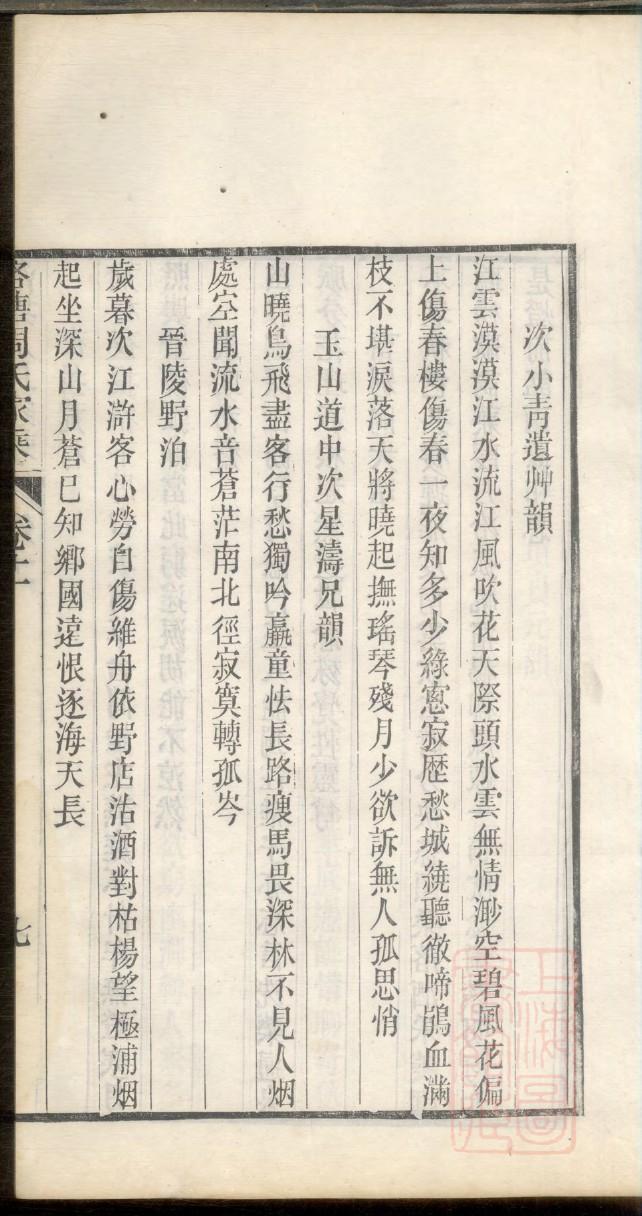 次小靑遺艸韻
江雲漠漠江水流江風吹花天際頭水雲無情渺空碧風花偏
上傷春樓傷春一夜知多少綠窻寂歷愁城繞聽徹啼鵑血滿
枝不堪淚落天將曉起撫瑤琴殘月少欲訴無人孤思悄
玉山道中次星濤兄韻
山曉鳥飛盡客行愁獨吟羸童怯長路瘦馬畏深林不見人烟
處空聞流水音蒼茫南北徑寂寞轉孤岑
晉陵野泊
歲暮次江滸客心勞自傷維舟依野店沽酒對枯楊望極浦烟
起坐深山月蒼已知鄉國遠恨逐海天長
周氏家乘 卷十一 七
上海圖書館藏